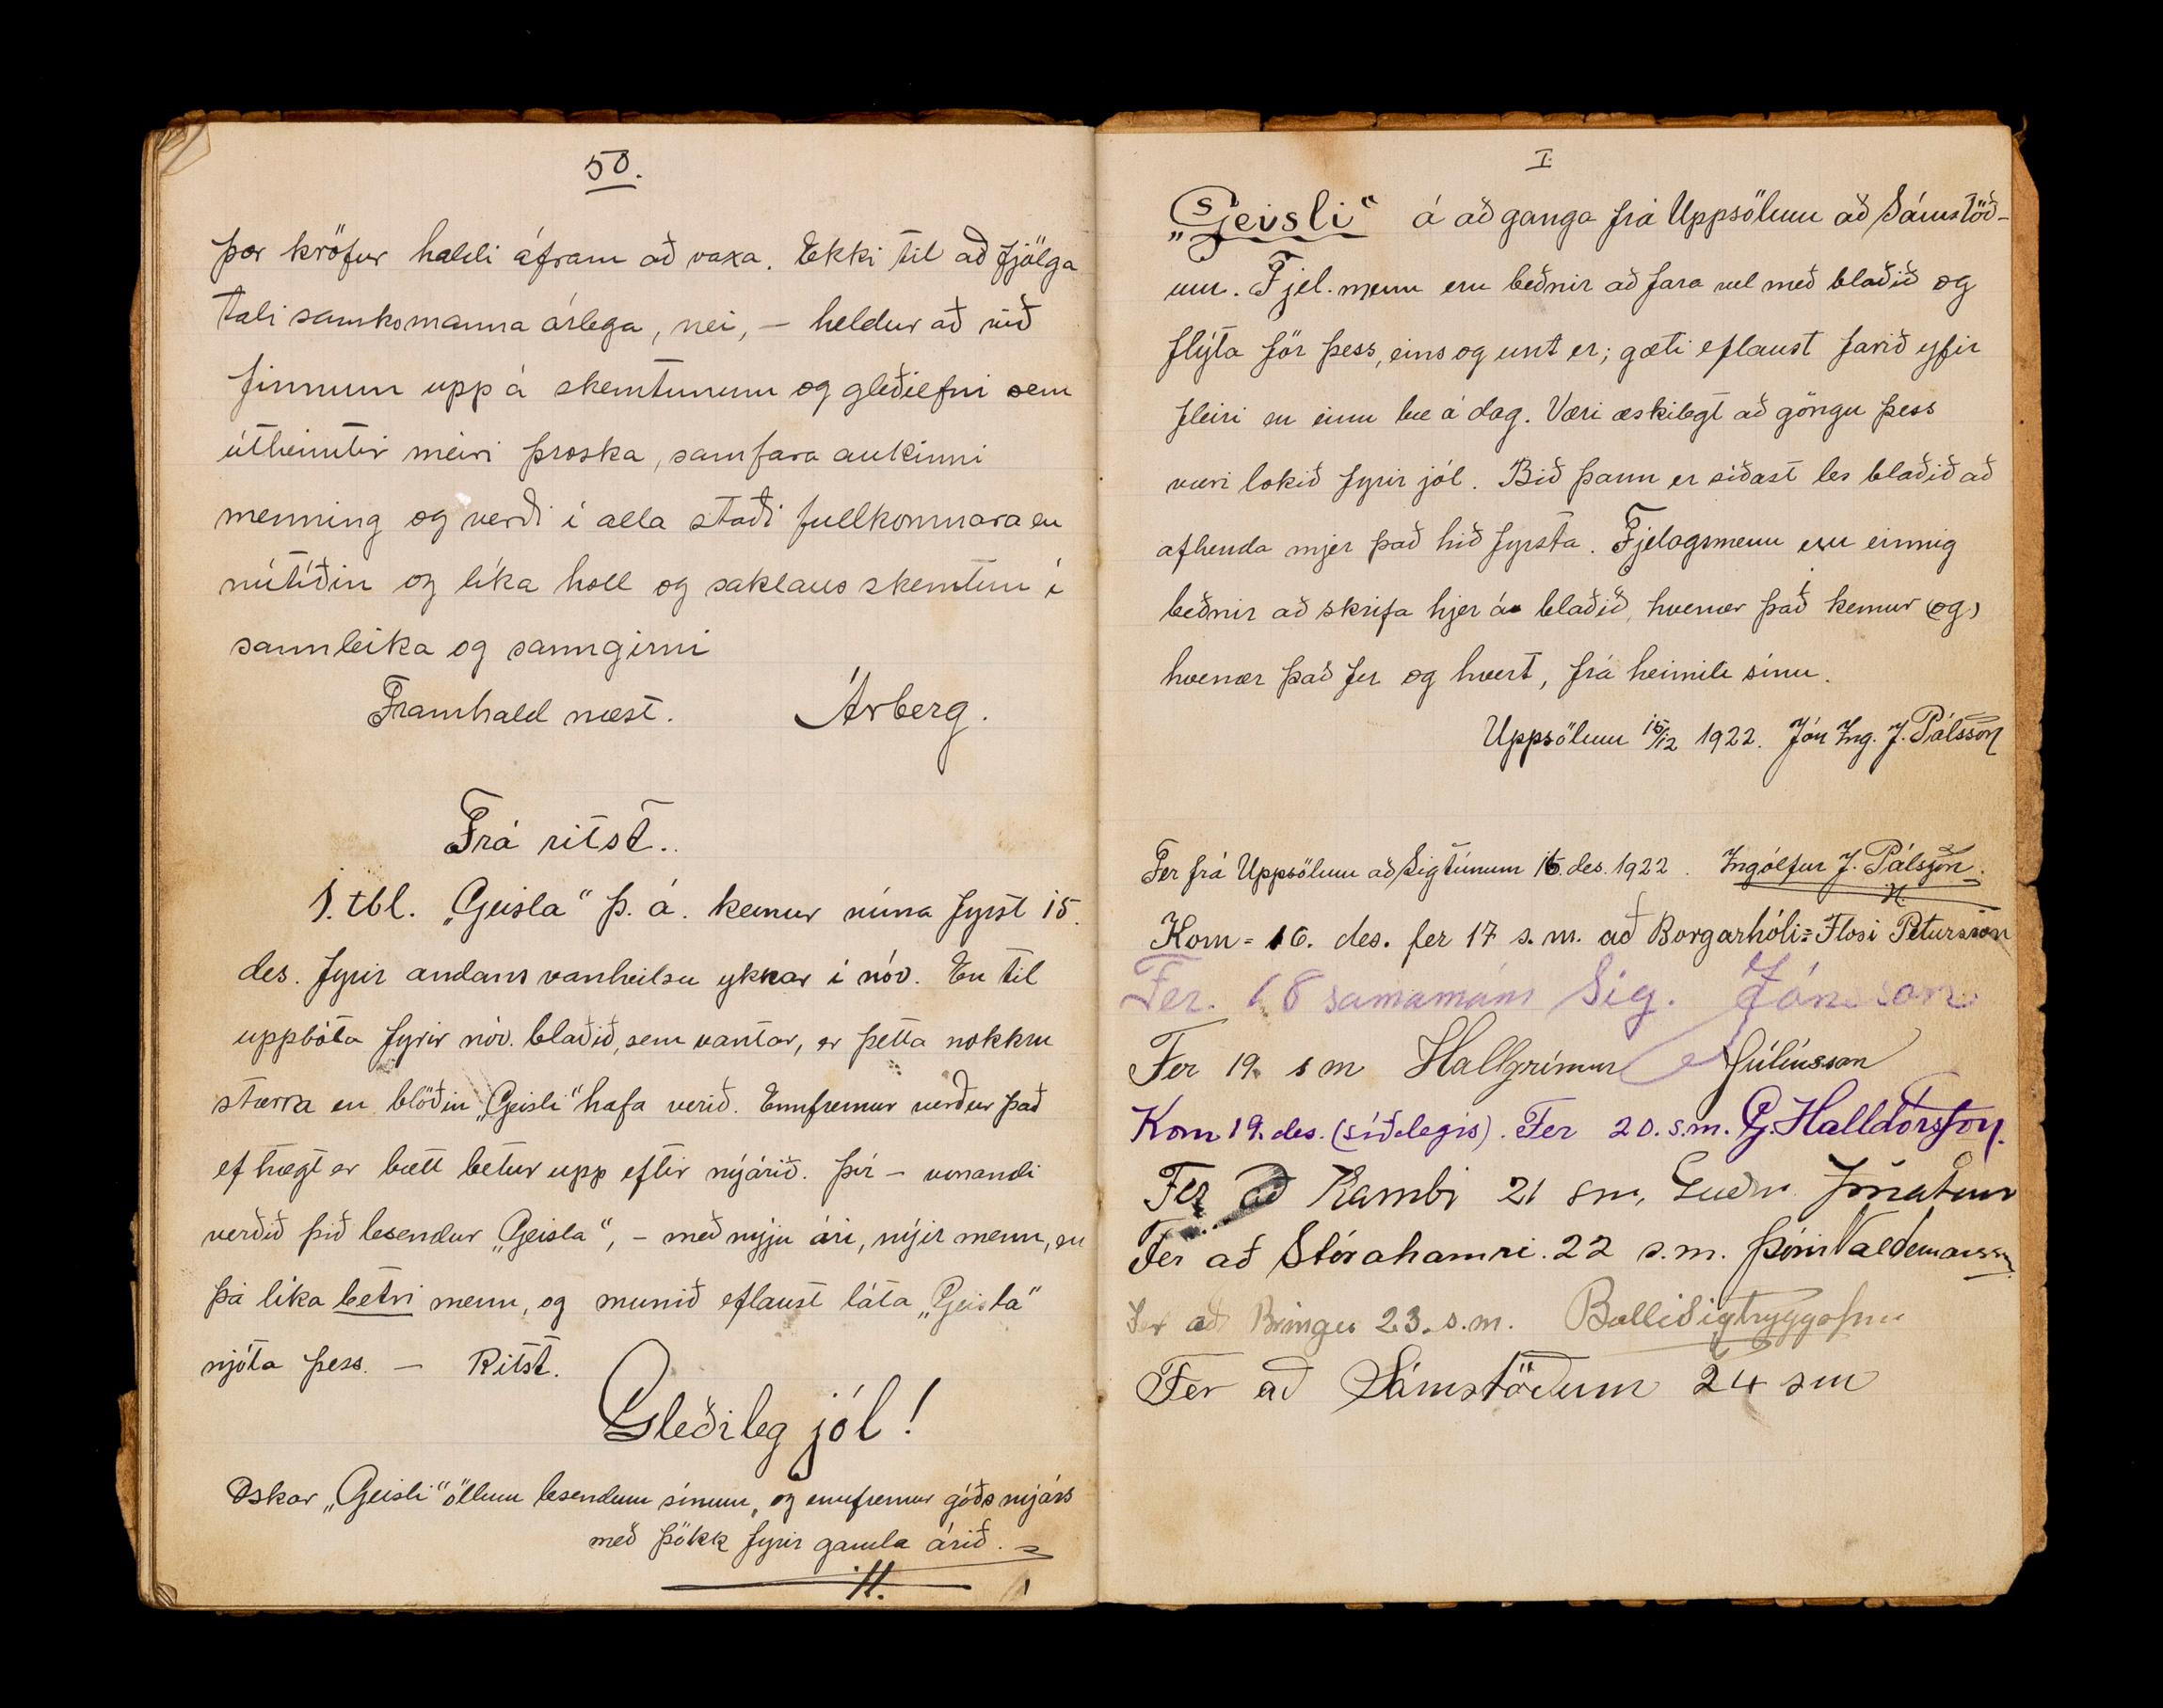 50.
þær kröfur haldi áfram að vaxa. Ekki til að fjölga
tali samkomanna árlega, nei, – heldur að við
finnum upp á skemtunum og gleðiefni sem
útheimtir meiri þroska, samfara aukinni
menning og verði í alla staði fullkomnara en
nútíðin og líka holl og saklaus skemtun í
sannleika og sanngirni
Framhald næst. Árberg.
Frá ritst..
1. tbl. „Geisla“ þ. á. kemur núna fyrst 15.
des. fyrir andans vanheilsu ykkar í nóv. En til
uppbóta fyrir nóv. blaðið, sem vantar, er þetta nokkru
stærra en blöðin „Geisli“ hafa verið. Ennfremur verður það
ef hægt er bætt betur upp eftir nýárið. Þið – vonandi
verðið þið lesendur „Geisla“, – með nýju ári, nýir menn, en
þá líka betri menn, og munið eflaust láta „Geisla“
njóta þess. – Ritst.
Gleðileg jól!
Óskar „Geisli“ öllum lesendum sínum, og ennfremur góðs nýárs
með þökk fyrir gamla árið.
I.
„Geisli“ á að ganga frá Uppsölum að Sámstöð-
um. Fjel.menn eru beðnir að fara vel með blaðið og
flýta för þess, eins og unt er; gæti eflaust farið yfir
fleiri en einn bæ á dag. Væri æskilegt að göngu þess
væri lokið fyrir jól. Bið þann er síðast les blaðið að
afhenda mjer það hið fyrsta. Fjelagsmenn eru einnig
beðnir að skrifa hjer á blaðið, hvenær það kemur (og)
hvenær það fer og hvert, frá heimili sínu.
Uppsölum 15/12 1922. Jón Ing. J. Pálsson
Fer frá Uppsölum að Sigtúnum 16. des. 1922. Ingólfur J. Pálsson.
Kom = 16. des. fer 17 s.m. að Borgarhóli = Flosi Pétursson
Fer. 18 samamáns Sig. Jónsson
Fer 19. s m Hallgrímur Júlíusson
Kom 19. des. (síðdegis). Fer 20. s.m. G. Halldórsson.
Fer að Kambi 21 sm, Guðm. Jónatans
Fer að Stórahamri. 22 s.m. Þórir Valdemarss.
Fer að Bringu 23. s.m. Balli Sigtryggsson
Fer að Sámstöðum 24 sm